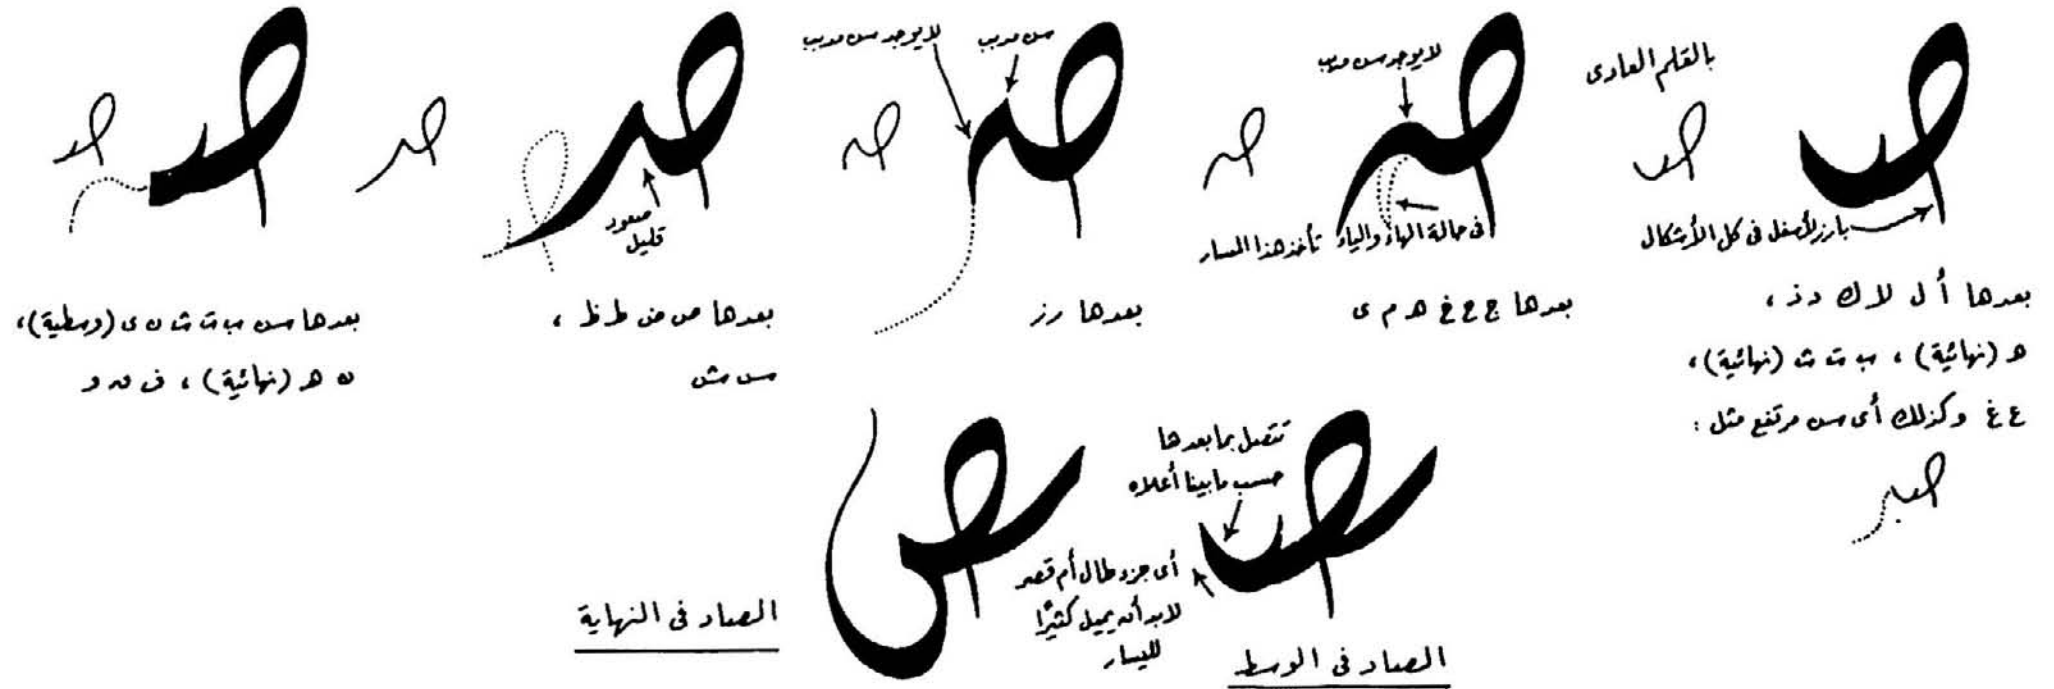 بالقلم العادى
بارز لأسفل فى كل الأشكال
بعدها أ ل لا ك د ذ ،
ه (نهائية) ، ب ت ث (نهائية)،
ع غ وكذلك أى سن مرتفع مثل :
صبر
لا يوجد سن مدبب
فى حالة الهاء والياء تأخذ هذا المسار
بعدها ج ح خ ه م ى
سن مدبب
لا يوجد سن مدبب
بعدها ر ز
صعود
قليل
بعدها ص ض ط ظ ،
س ش
بعدها س ب ت ث ن ى (وسطية)،
ن ه (نهائية) ، ف ق و
تتصل بما بعدها
حسب ما بينا أعلاه
أى جزء طال أم قصر
لابد أن يميل كثيرًا
لليسار
الصاد فى الوسط
الصاد فى النهاية